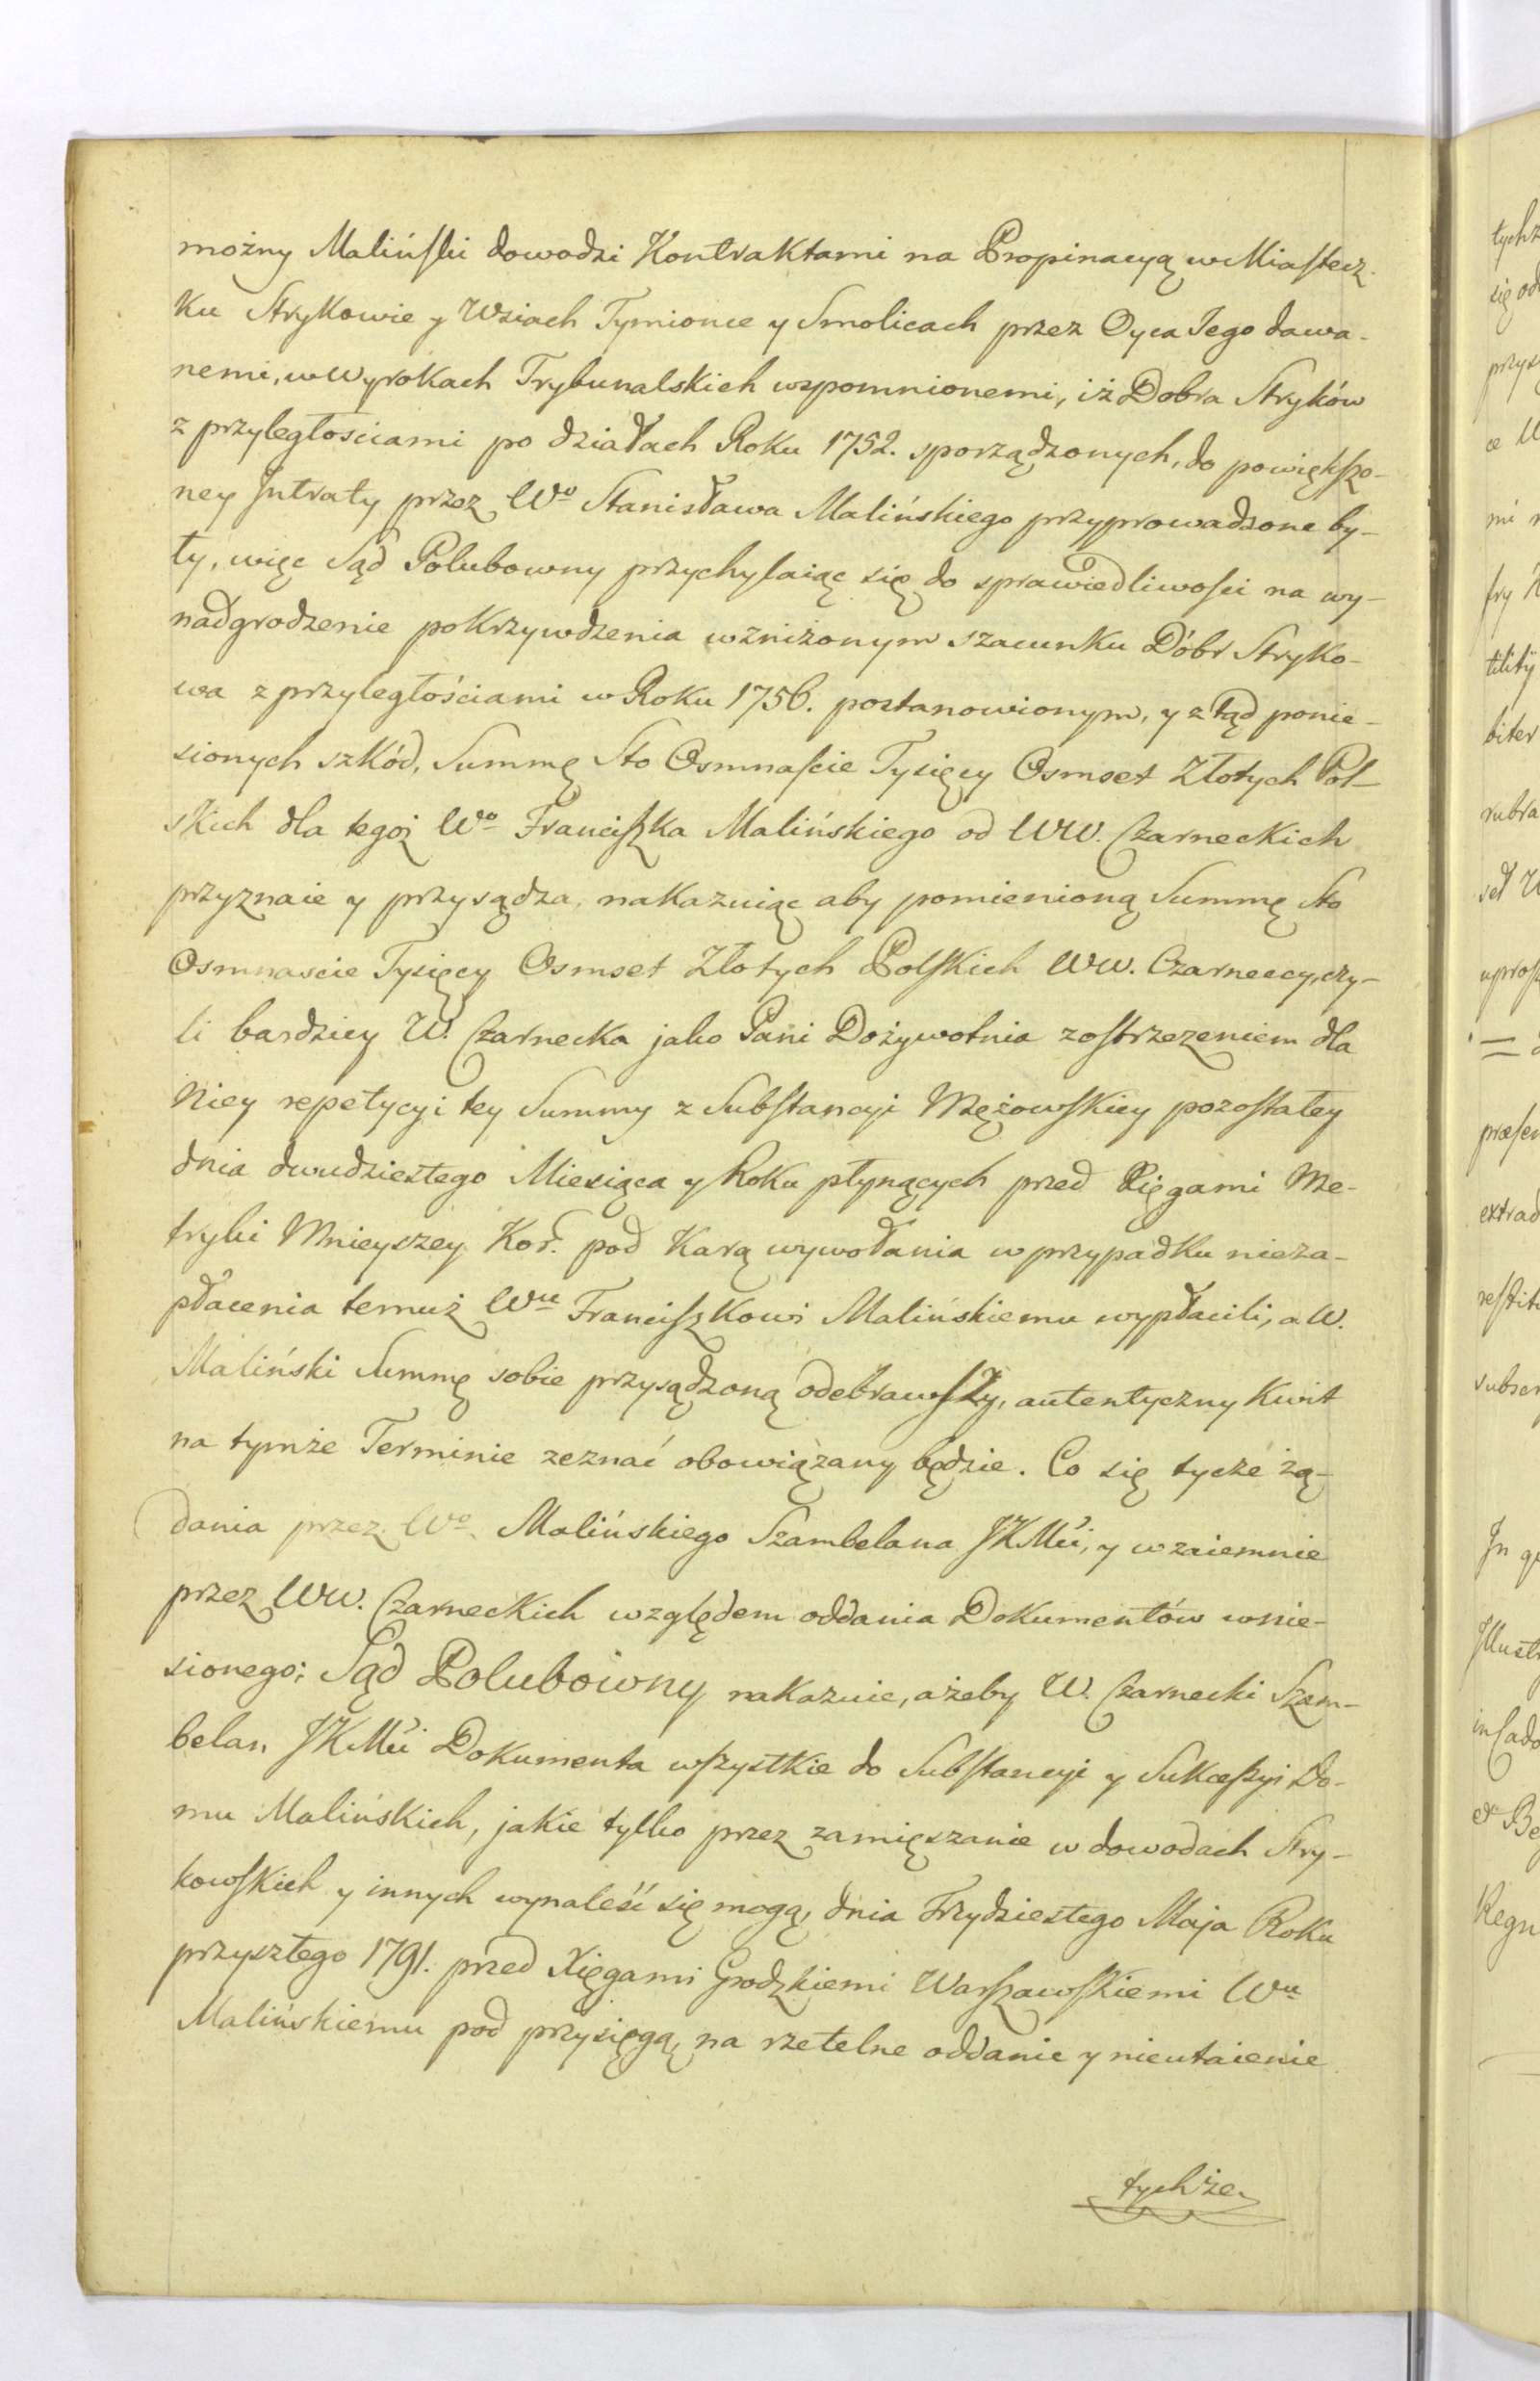 możny Maliński dowodzi Kontraktami na Propinacyą w Miastecz-
ku Strykowie y Wsiach Tymionce y Smolicach przez Oyca Jego dawa-
nemi, w Wyrokach Trybunalskich wspomnionemi, iż Dobra Stryków
z przyległosciami po działach Roku 1752. sporządzonych, do powiększo-
ney Intraty przez Wo Stanisława Malińskiego przyprowadzone by-
ły, więc Sąd Polubowny przychylaiąc się do sprawiedliwości na wy-
nadgrodzenie pokrzywdzenia w zniżonym szacunku Dóbr Stryko-
wa z przyległościami w Roku 1756. postanowionym, y ztąd ponie-
sionych szkód, Summę Sto Osmnaście Tysięcy Osmset Złotych Pol-
skich dla tegoż Wo Franciszka Malińskiego od WW. Czarneckich
przyznaie y przysądza, nakazuiąc aby pomienioną Summę Sto
Osmnascie Tysięcy Osmset Złotych Polskich WW. Czarneccy, czy-
li bardziey W. Czarnecka jako Pani Dożywotnia zostrzezeniem dla
Niey repetycyi tey Summy z Substancyi Mężowskiey pozostałey
dnia dwudziestego Miesiąca y Roku płynących przed Xięgami Me-
tryki Mnieyszey Kor. pod Karą wywołania w przypadku nieza-
płacenia temuż Wu Franciszkowi Malińskiemu wypłacili, a W.
Maliński Summę sobie przysądzoną odebrawszy, autentyczny Kwit
na tymże Terminie zeznać obowiązany będzie. Co się tycze żą-
dania przez Wo Malińskiego Szambelana JKMci, y wzaiemnie
przez WW. Czarneckich względem oddania Dokumentów wnie-
sionego; Sąd Polubowny nakazuie, ażeby W. Czarnecki Szam-
belan JKMci Dokumenta wszystkie do Substancyi y Sukcessyi Do-
mu Malińskich, jakie tylko przez zamięszanie w dowodach Stry-
kowskich y innych wynaleść się mogą, dnia Trzydziestego Maja Roku
przyszłego 1791. przed Xięgami Grodzkiemi Warszawskiemi Wu
Malińskiemu pod przysięgą, na rzetelne oddanie y nieutaienie
tychże